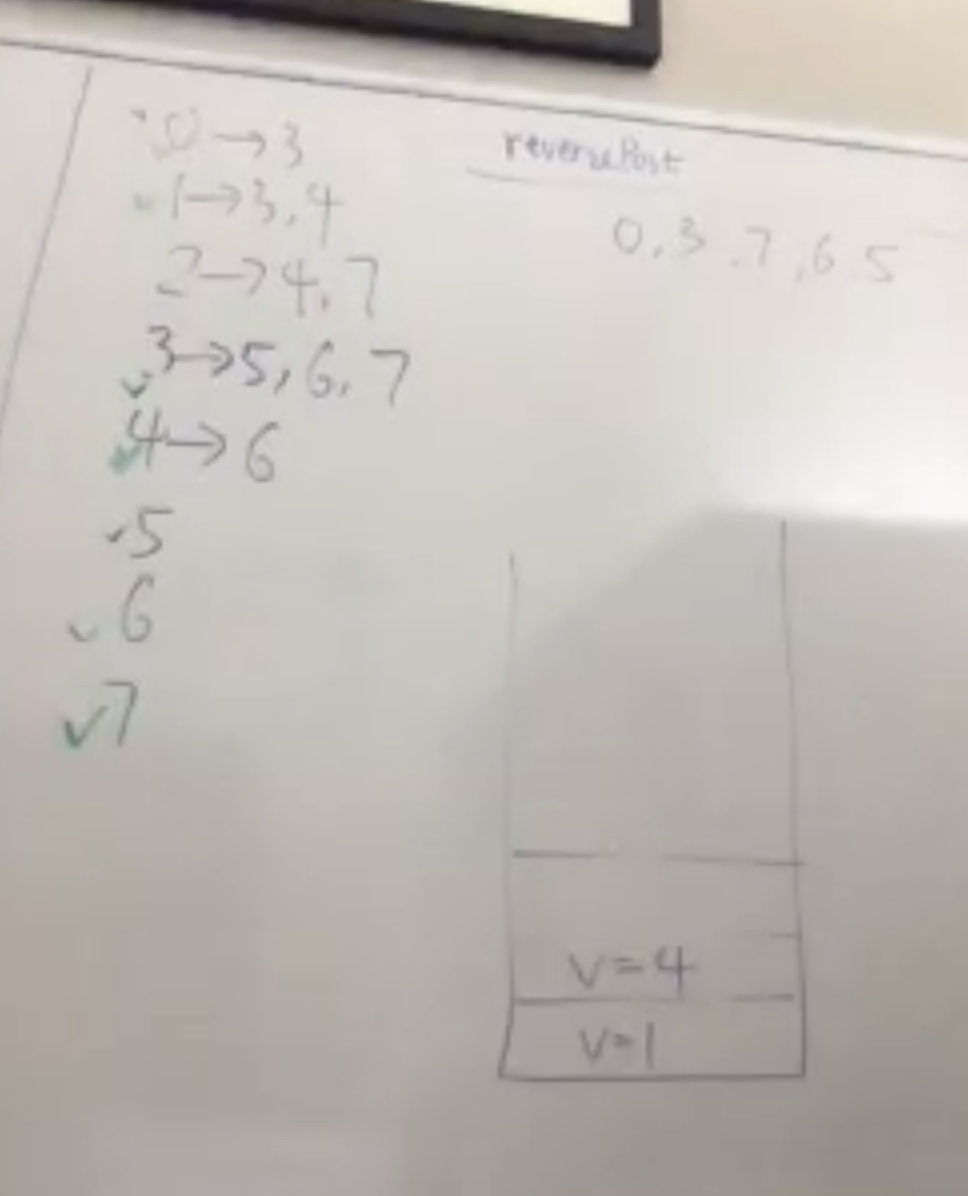 0→3
1→3,4
2→4,7
3→5,6,7
4→6
5
6
7
reversePost
0,3,7,6,5
V=4
V=1